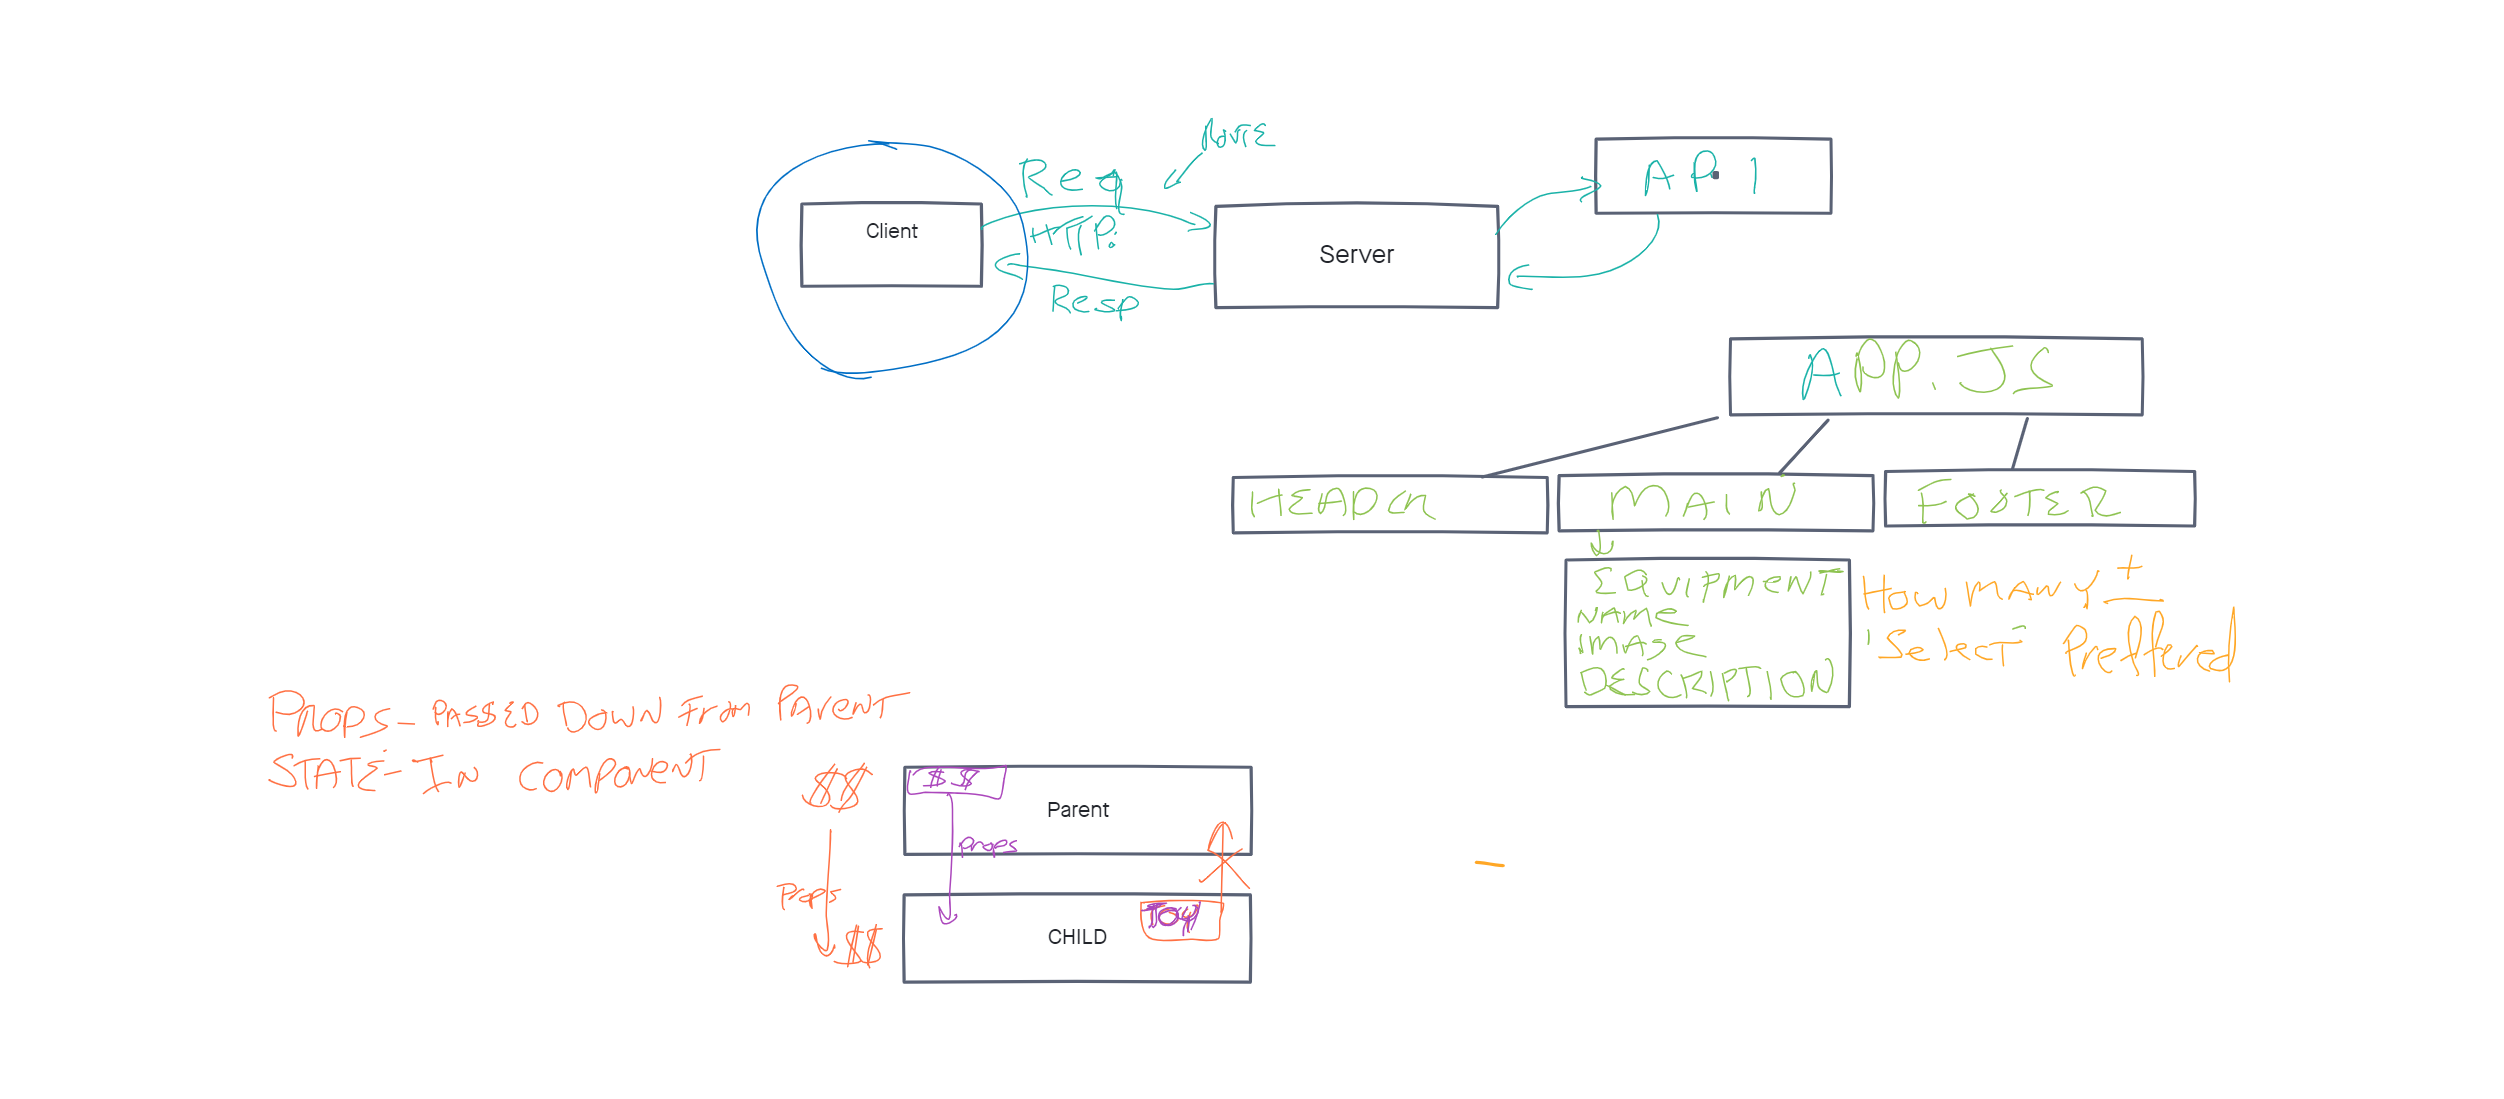 Route
Req
API
Client
HTTP:
Server
Resp
APP.JS
HEADER
MAIN
FOOTER
EQUIPMENT
NAME
IMAGE
DESCRIPTION
How many
+
Select Preffered
PROPS - PASSED DOWN From Parent
STATE - In component
$$
$$
Parent
props
Props
$$
TOY
CHILD